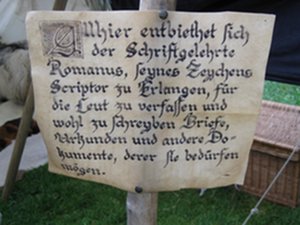 Allhier entbiethet sich
der Schriftgelehrte
Romanus, seynes Zeychens
Scriptor zu Erlangen, für
die Leut zu verfassen und
wohl zu schreyben Briefe,
Urkunden und andere Do-
kumente, derer sie bedürfen
mögen.